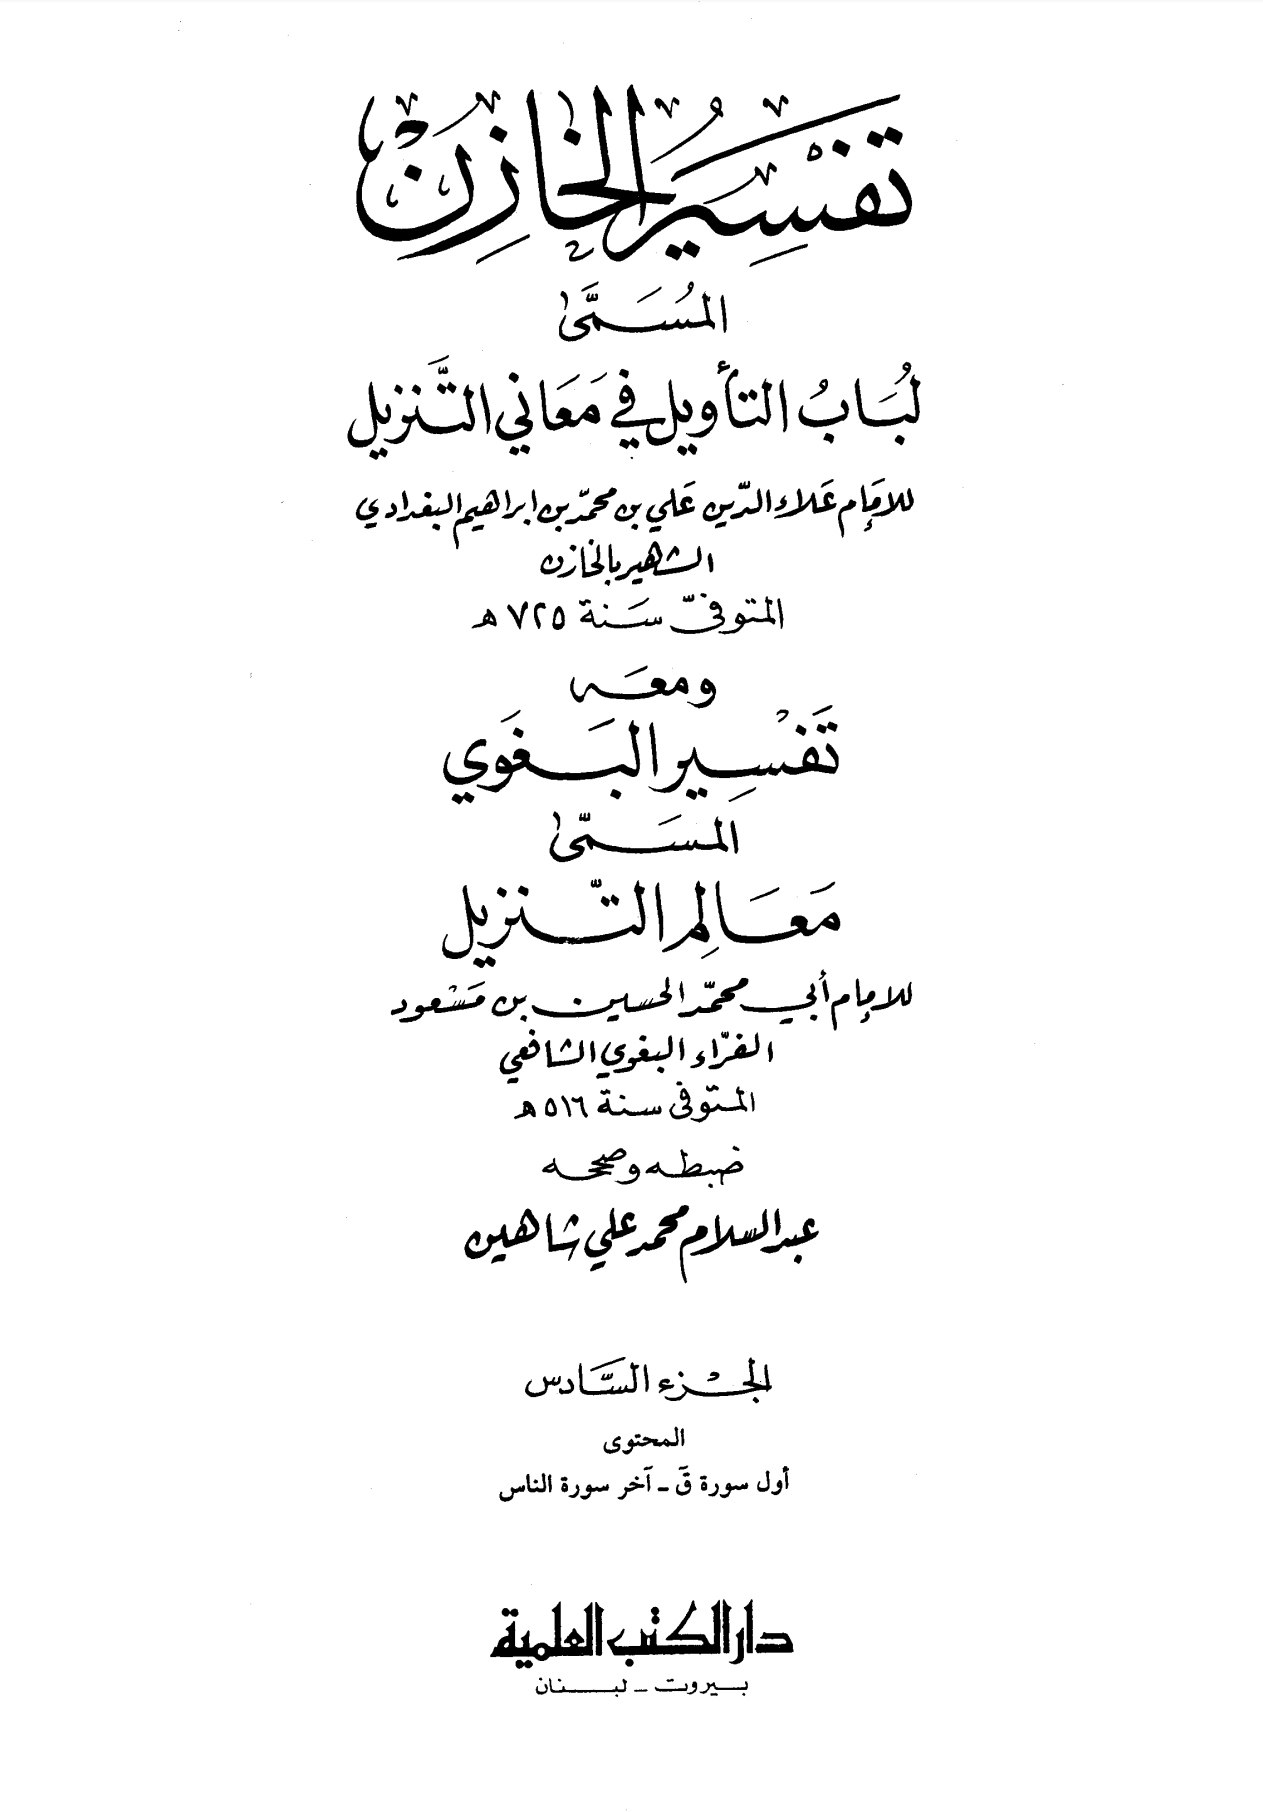 تفسير الخازن
المُسَمَّى
لُبَابُ التأويل في مَعَاني التَّنزيل
للإمَام عَلاء الدّين عَلي بن محمّد بن ابراهيم البغدادي
الشهير بالخازن
المتوفىّ سَنة ٧٢٥ هـ
ومعَه
تَفْسِير البَغَوي
المسَمّى
مَعَالِم التّنزيل
للامام أبي محمّد الحسين بن مَسْعود
الفرّاء البغوي الشافعي
المتوّفى سنة ٥١٦ هـ
ضبطه وصححه
عبد السلام محمد علي شاهين
الجزء السَّادس
المحتوى
أول سورة قَ - آخر سورة الناس
دار الكتب العلمية
بيروت - لبنان